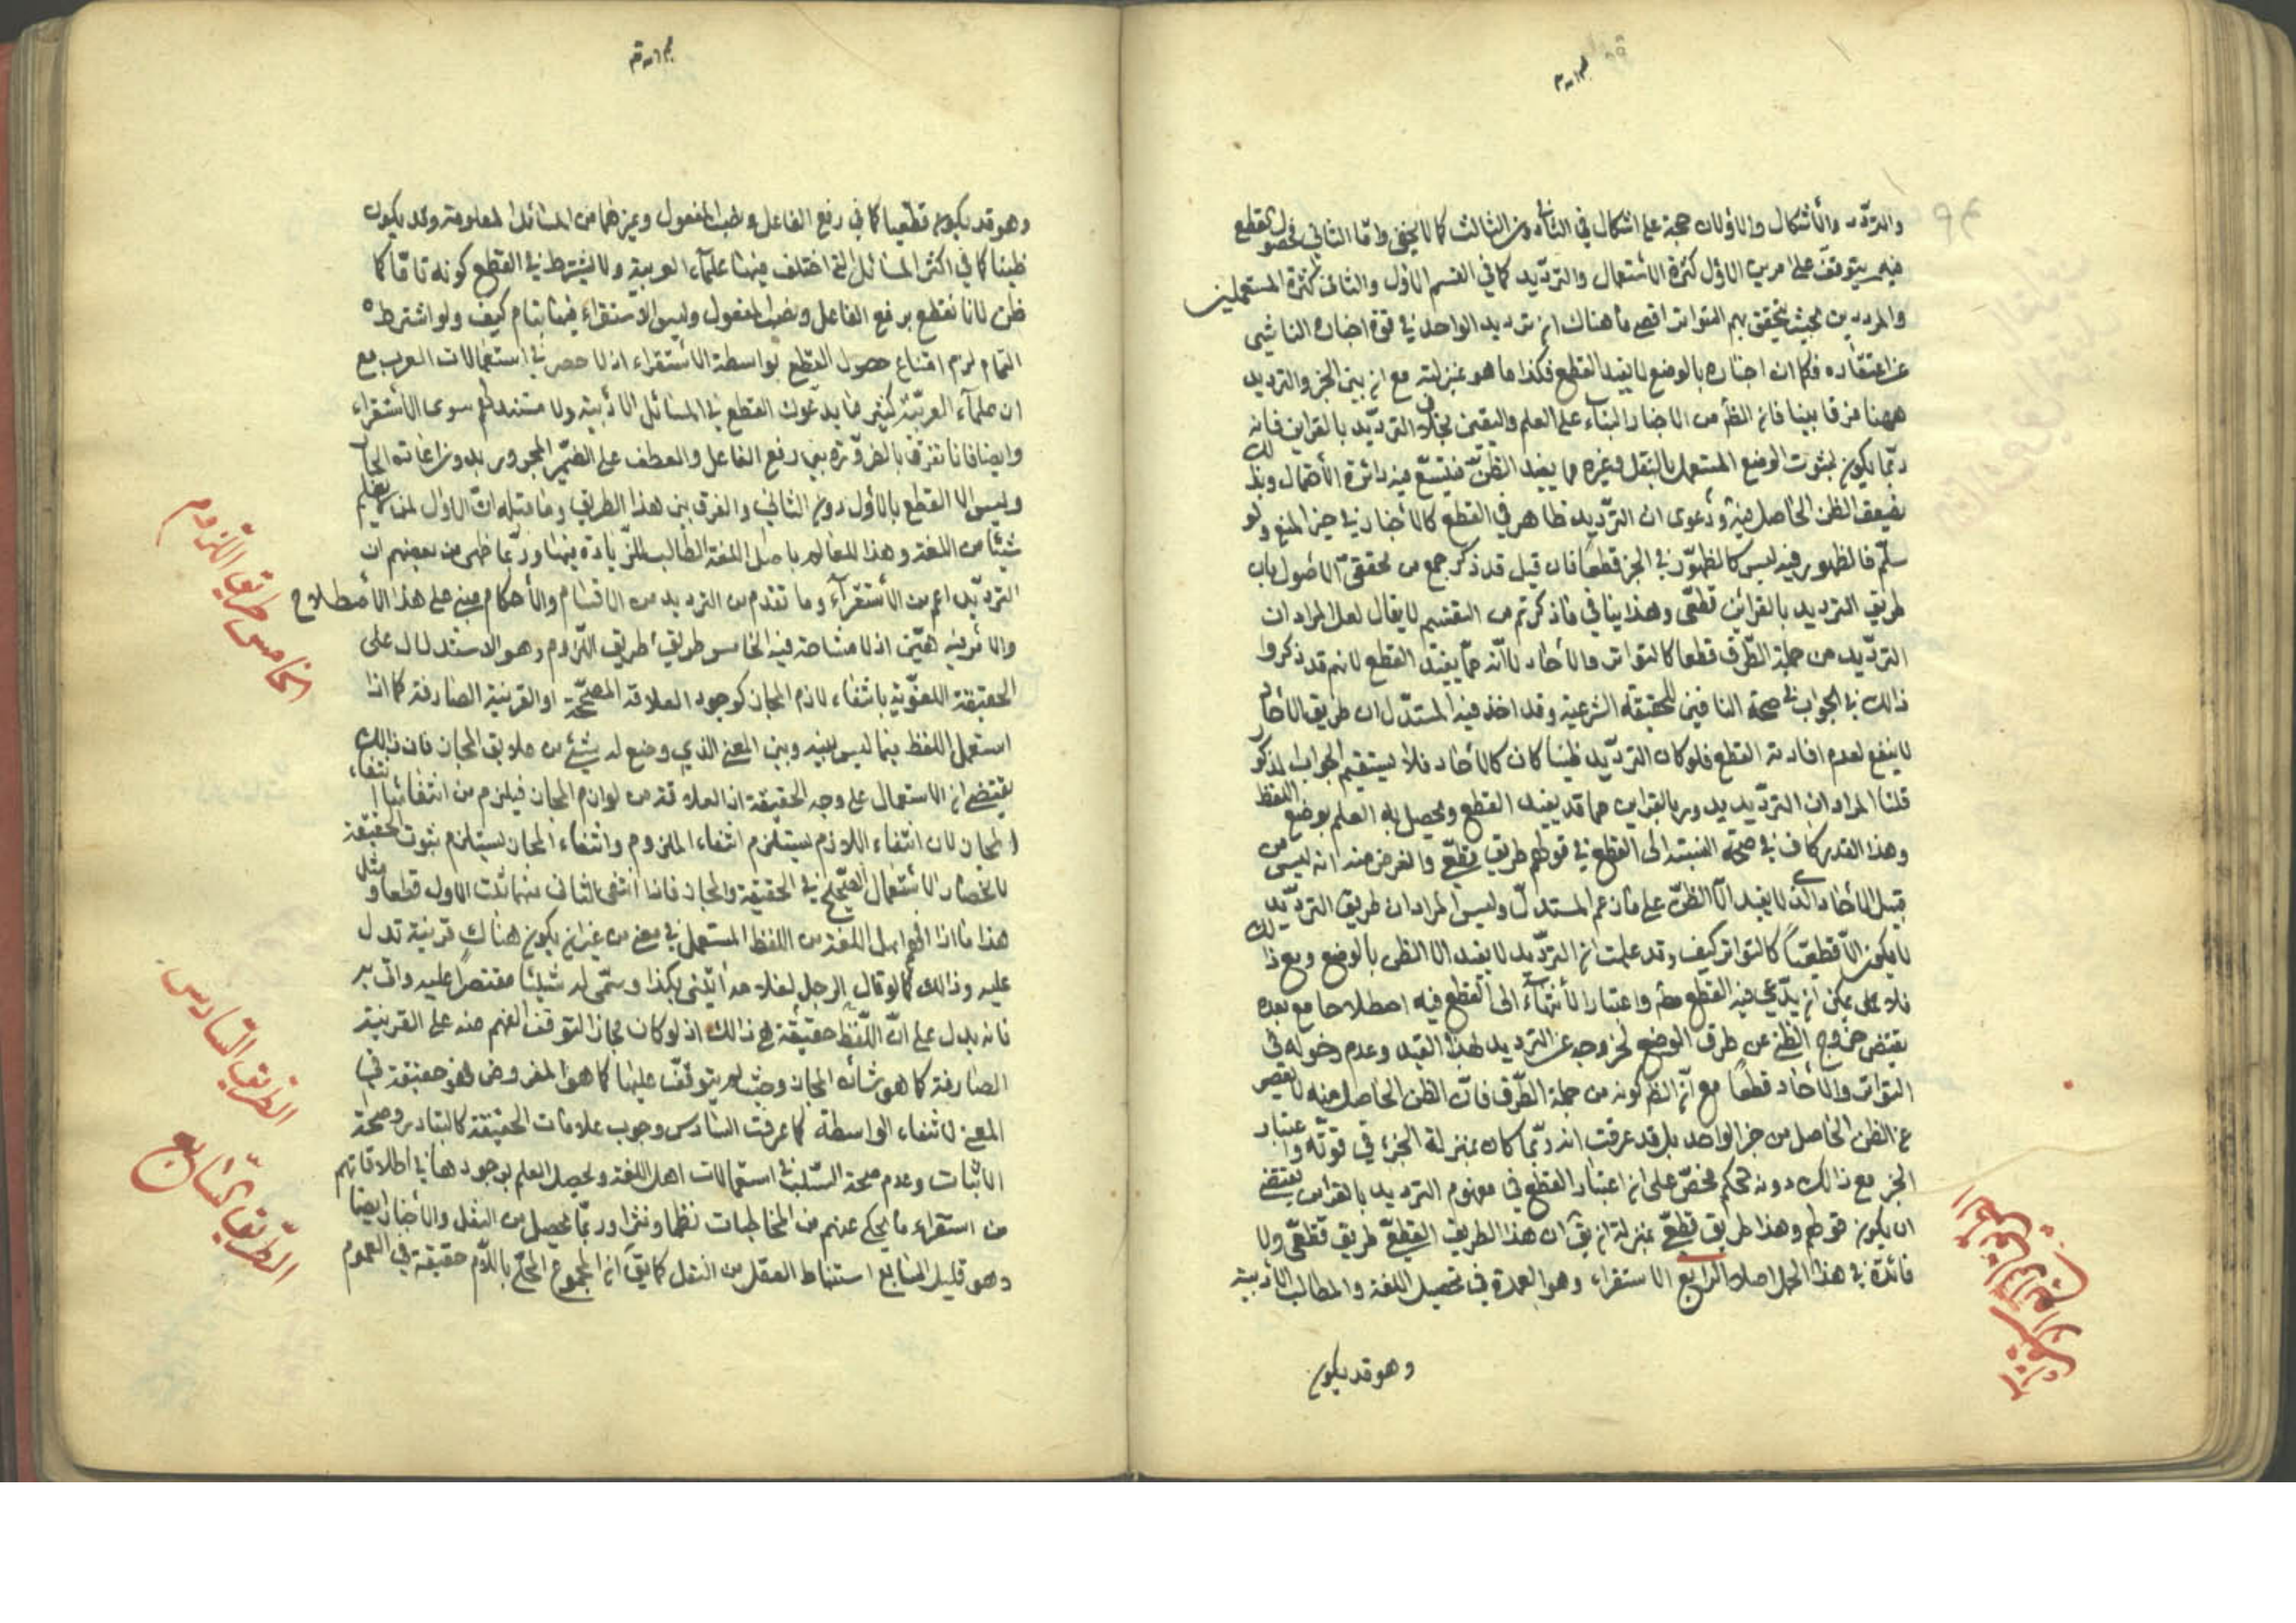 والترديد والأشكال والاولان حجة على اشكال في الثاني دون الثالث كما لا يخفى واما الثاني فحصول القطع
فيه يتوقف على امرين الاول كثرة الاستعمال والترديد كما في القسم الاول والثاني كثرة المستعملين
والمرددين بحيث يتحقق بهم التواتر اقصى ما هناك ان ترديد الواحد في قوة اخباره الناشي
عن اعتقاده فكما ان اخباره بالوضع لا يفيد القطع فكذا ما هو بمنزلته مع ان بين الخبر والترديد
ههنا فرقا بينا فان الظ من الاخبار البناء على العلم واليقين بخلاف الترديد بالقراين فانه
ربما يكون لثبوت الوضع المستعمل بالنقل وغيره مما يفيد الظن فيتسع فيه دائرة الاحتمال وبذلك
يضعف الظن الحاصل منه ودعوى ان الترديد ظاهر في القطع كالأخبار في حيز المنع ولو
سلم فالظهور فيه ليس كالظهور في الخبر قطعا فان قيل قد ذكر جمع من محققي الاصول باب
طريق الترديد بالقرائن قطعي وهذا ينافي ما ذكرتم من التقسيم لا يقال لعل المراد ان
الترديد من جملة الطرق قطعا كالتواتر والآحاد لا انه مما يفيد القطع لانهم قد ذكروا
ذلك في الجواب في صحة النافين للحقيقة الشرعية وقد اخذ فيه المستدل ان طريق الآحاد
لا ينفع لعدم افادته القطع فلو كان الترديد ظنيا كان كالآحاد فلا يستقيم الجواب المذكور
قلنا المراد ان الترديد يدور بالقراين مما قد يفيد القطع ويحصل به العلم بوضع اللفظ
وهذا القدر كاف في صحة النسبة الى القطع في قولهم طريق قطعي والغرض منه انه ليس من
قبيل الآحاد الذي لا يفيد الا الظن على ما زعم المستدل وليس المراد ان طريق الترديد
لا يكون الا قطعيا كالتواتر كيف وقد علمت ان الترديد لا يفيد الا الظن بالوضع ومع ذلك
فلا يمكن ان يدعى فيه القطع مط واعتبار الانتهاء الى القطع فيه اصطلاحا مع بعده
يقتضي خروج الظني عن طرق الوضع لخروجه عن الترديد لهذا القيد وعدم دخوله في
التواتر والآحاد قطعا مع ان الظ كونه من جملة الطرق فان الظن الحاصل منه لا يقصر
عن الظن الحاصل من خبر الواحد بل قد عرفت انه ربما كان بمنزلة الخبر في قوته واعتبار
الخبر مع ذلك دونه تحكم محض على ان اعتبار القطع في مفهوم الترديد بالقراين يقتضي
ان يكون قولهم وهذا طريق قطعي بمنزلة ان يق ان هذا الطريق القطعي طريق قطعي ولا
فائدة في هذا الحمل اصلا الرابع الاستقراء وهو العمدة في تحصيل اللغة والمطالب الأدبية
وهو قد يكون
وهو قد يكون قطعيا كما في رفع الفاعل ونصب المفعول وغيرهما من المسائل المعلومة وقد يكون
ظنيا كما في اكثر المسائل التي اختلف فيها علماء العربية ولا يشترط في القطع كونه تاما كما
ظن لانا نقطع برفع الفاعل ونصب المفعول وليس الاستقراء فيها بتام كيف ولو اشترط
التمام لزم امتناع حصول القطع بواسطة الاستقراء اذ لا حصر في استعمالات العرب مع
ان علماء العربية كثيرا ما يدعون القطع في المسائل الأدبية ولا مستند لهم سوى الاستقراء
وايضا فانا نفرق بالضرورة بين رفع الفاعل والعطف على الضمير المجرور بدون اعادة الجار
وليس الا القطع بالاول دون الثاني والفرق بين هذا الطريق وما قبله ان الاول لمن لا يعلم
شيئا من اللغة وهذا للعالم باصل اللغة الطالب للزيادة فيها وربما ظهر من بعضهم ان
الترديد اعم من الاستقراء وما تقدم من الترديد من الاقسام والاحكام مبني على هذا الاصطلاح
والامر فيه هين اذ لا مشاحة فيه الخامس طريق اللزوم وهو الاستدلال على
الحقيقة اللغوية بانتفاء لازم المجاز كوجود العلاقة المصححة او القرينة الصارفة كما اذا
استعمل اللفظ فيما ليس بينه وبين المعنى الذي وضع له شيئ من علايق المجاز فان ذلك
يقتضي ان الاستعمال على وجه الحقيقة اذ العلاقة من لوازم المجاز فيلزم من انتفائها انتفاء
المجاز لان انتفاء اللازم يستلزم انتفاء الملزوم وانتفاء المجاز يستلزم ثبوت الحقيقة
لانحصار الاستعمال الصحيح في الحقيقة والمجاز فاذا انتفى الثاني منهما ثبت الاول قطعا ومثل
هذا ما اذا فهم اهل اللغة من اللفظ المستعمل في معنى من غير ان يكون هناك قرينة تدل
عليه وذلك كما لو قال الرجل لغلامه أيتني بكذا وسمى له شيئا مقتصرا عليه واتى به
فانه يدل على ان اللفظ حقيقة في ذلك اذ لو كان مجازا لتوقف الفهم منه على القرينة
الصارفة كما هو شان المجاز وحيث لم يتوقف عليها كما هو المفروض فهو حقيقة في
المعنى لانتفاء الواسطة كما عرفت السادس وجوب علامات الحقيقة كالتبادر وصحة
الاثبات وعدم صحة السلب في استعمالات اهل اللغة ويحصل العلم بوجودها في اطلاقاتهم
من استقراء ما يحكى عنهم من المخاطبات نظما ونثرا وربما يحصل من النقل والاخبار ايضا
وهو قليل السابع استنباط العقل من النقل كما يق ان المجموع المحلى باللام حقيقة في العموم
الخامس طريق اللزوم
الطريق السادس
الطريق السابع